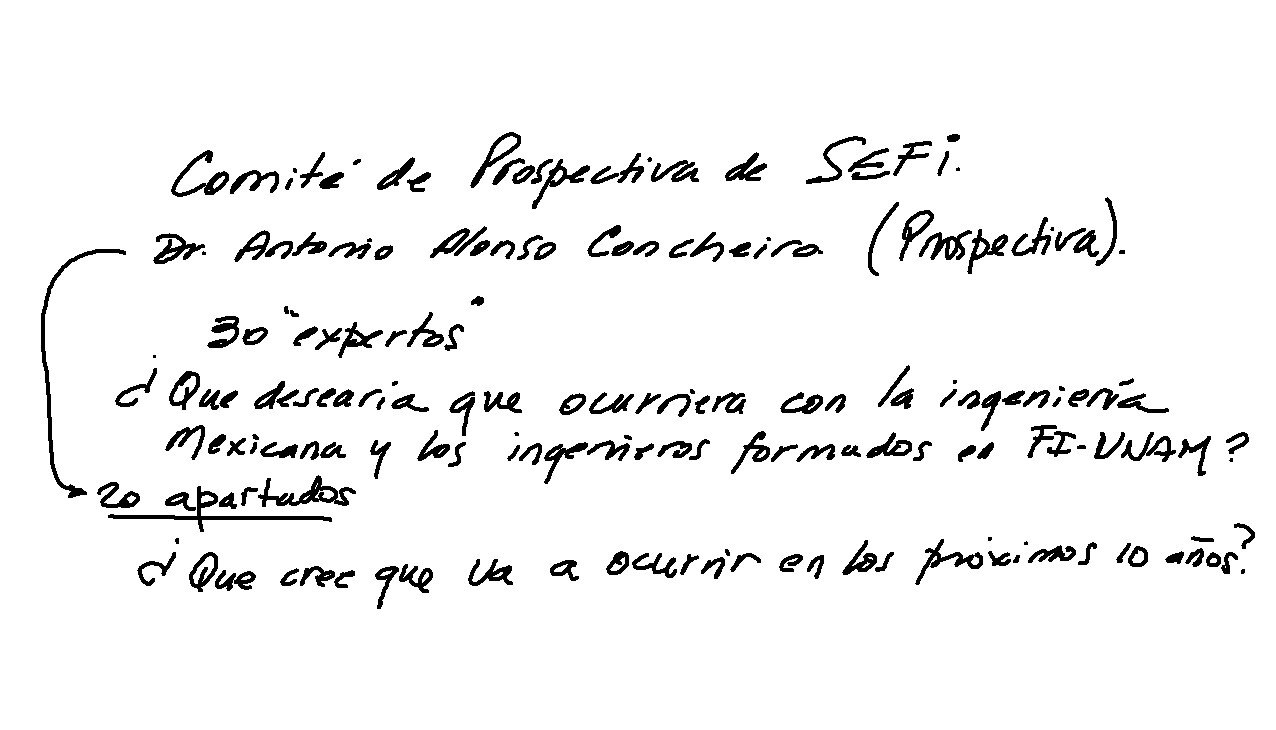 Comité de Prospectiva de SEFi.
Dr. Antonio Alonso Concheiro (Prospectiva).
30 "expertos"
¿Que desearia que ocurriera con la ingeniería
Mexicana y los ingenieros formados en FI-UNAM?
20 apartados
¿Que cree que va a ocurrir en los próximos 10 años?